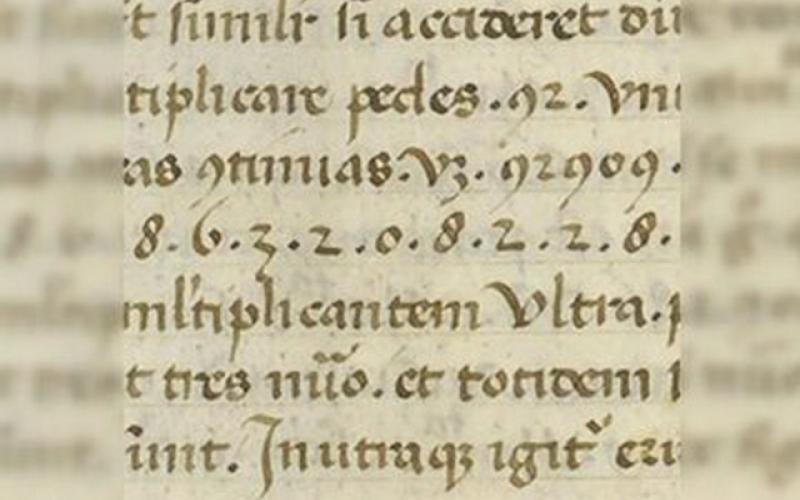 t similr si accideret diu
tiplicare pedes . 92 . Vni
as 9tinuas. Vz . 92909 .
8 . 6 . 3 . 2 . 0 . 8 . 2 . 2 . 8 .
ml'tiplicantem Vltra . p
t tres nūo . et totidem
unt . In utraqz igit' eri